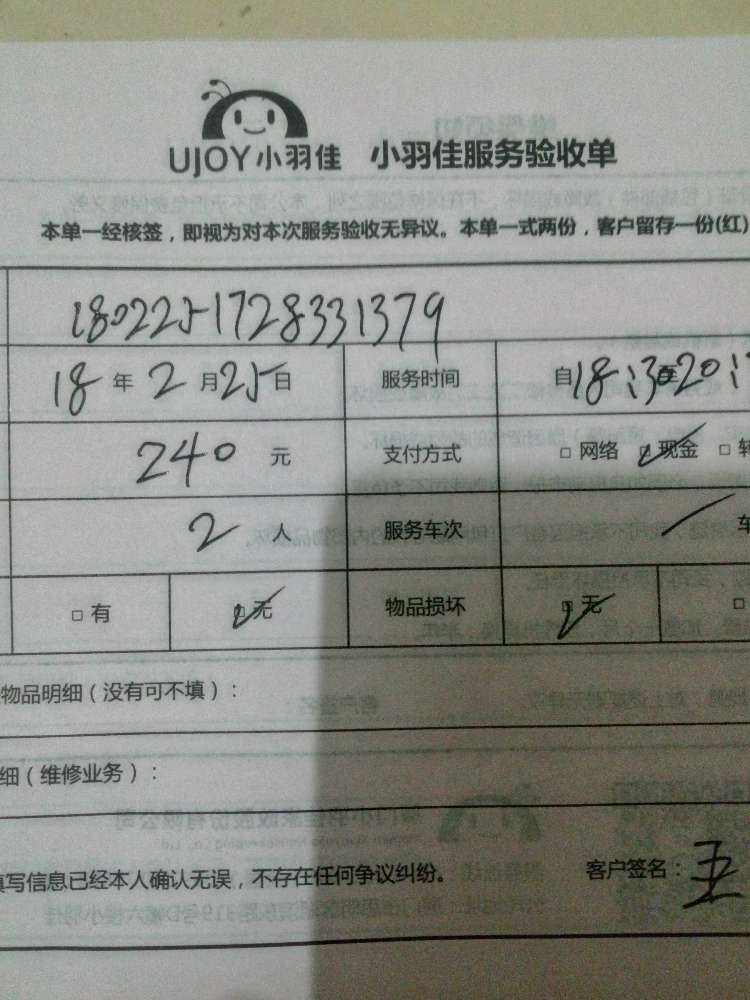 UJOY小羽佳 小羽佳服务验收单
本单一经核签，即视为对本次服务验收无异议。本单一式两份，客户留存一份(红)
1802251728331379
18年2月25日 服务时间 自18:30至20:
240元 支付方式 □网络 ☑现金 □转
2人 服务车次 / 车
□有 ☑无 物品损坏 ☑无 □
物品明细（没有可不填）：
细（维修业务）：
填写信息已经本人确认无误，不存在任何争议纠纷。 客户签名：